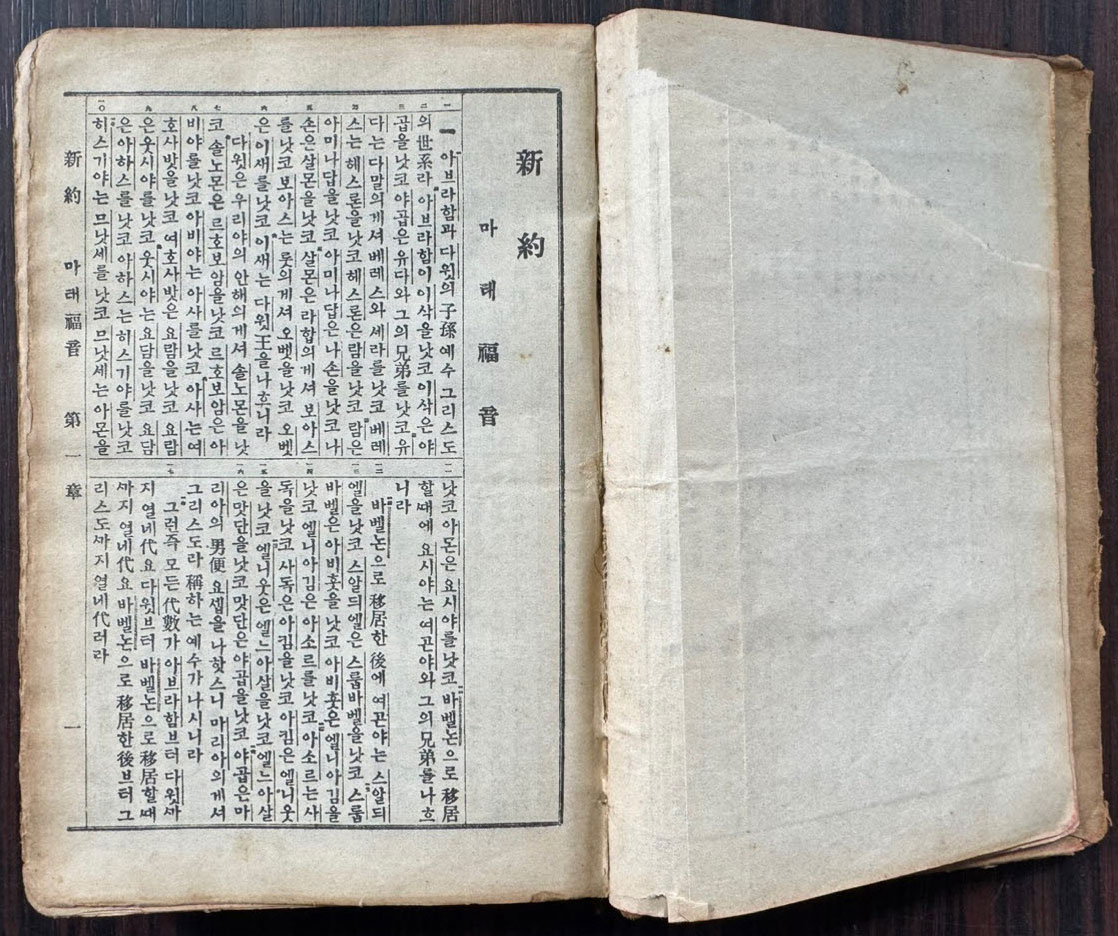 新約
마태福音
一 二 三 四 五 六 七 八 九 一〇
一 아브라함과 다윗의 子孫 예수 그리스도
의 世系라 아브라함이 이삭을 낫코 이삭은 야
곱을 낫코 야곱은 유다와 그의 兄弟를 낫코 유
다는 다말의게셔 베레스와 세라를 낫코 베레
스는 헤스론을 낫코 헤스론은 람을 낫코 람은
아미나답을 낫코 아미나답은 나손을 낫코 나
손은 살몬을 낫코 살몬은 라합의게셔 보아스
를 낫코 보아스는 룻의게셔 오벳을 낫코 오벳
은 이새를 낫코 이새는 다윗王을 나흐니라
다윗은 우리야의 안해의게셔 솔노몬을 낫
코 솔노몬은 르호보암을 낫코 르호보암은 아
비야를 낫코 아비야는 아사를 낫코 아사는 여
호사밧을 낫코 여호사밧은 요람을 낫코 요람
은 웃시야를 낫코 웃시야는 요담을 낫코 요담
은 아하스를 낫코 아하스는 히스기야를 낫코
히스기야는 므낫세를 낫코 므낫세는 아몬을
一一 一二 一三 一四 一五 一六 一七
낫코 아몬은 요시야를 낫코 바벨논으로 移居
할 때에 요시야는 여곤야와 그의 兄弟를 나흐
니라
바벨논으로 移居한 後에 여곤야는 스알듸
엘을 낫코 스알듸엘은 스룹바벨을 낫코 스룹
바벨은 아비훗을 낫코 아비훗은 엘니아김을
낫코 엘니아김은 아소르를 낫코 아소르는 사
독을 낫코 사독은 아킴을 낫코 아킴은 엘니웃
을 낫코 엘니웃은 엘느아살을 낫코 엘느아살
은 맛단을 낫코 맛단은 야곱을 낫코 야곱은 마
리아의 男便 요셉을 나핫스니 마리아의게셔
그리스도라 稱하는 예수가 나시니라
그런즉 모든 代數가 아브라함브터 다윗ᄭᅡ
지 열네 代요 다윗브터 바벨논으로 移居할 때
ᄭᅡ지 열네 代요 바벨논으로 移居한 後브터 그
리스도ᄭᅡ지 열네 代러라
新約 마태福音 第一章 一